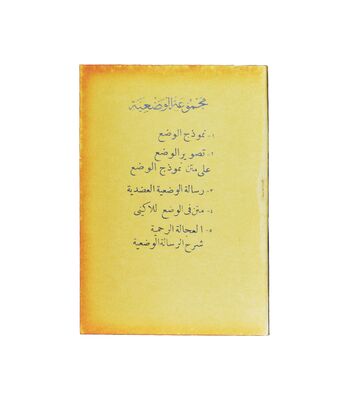 مجموعة الوضعية
١- نموذج الوضع
٢- تصوير الوضع
على متن نموذج الوضع
٣- رسالة الوضعية العضدية
٤- متن فى الوضع للاكينى
٥- العجالة الرحمية
شرح الرسالة الوضعية